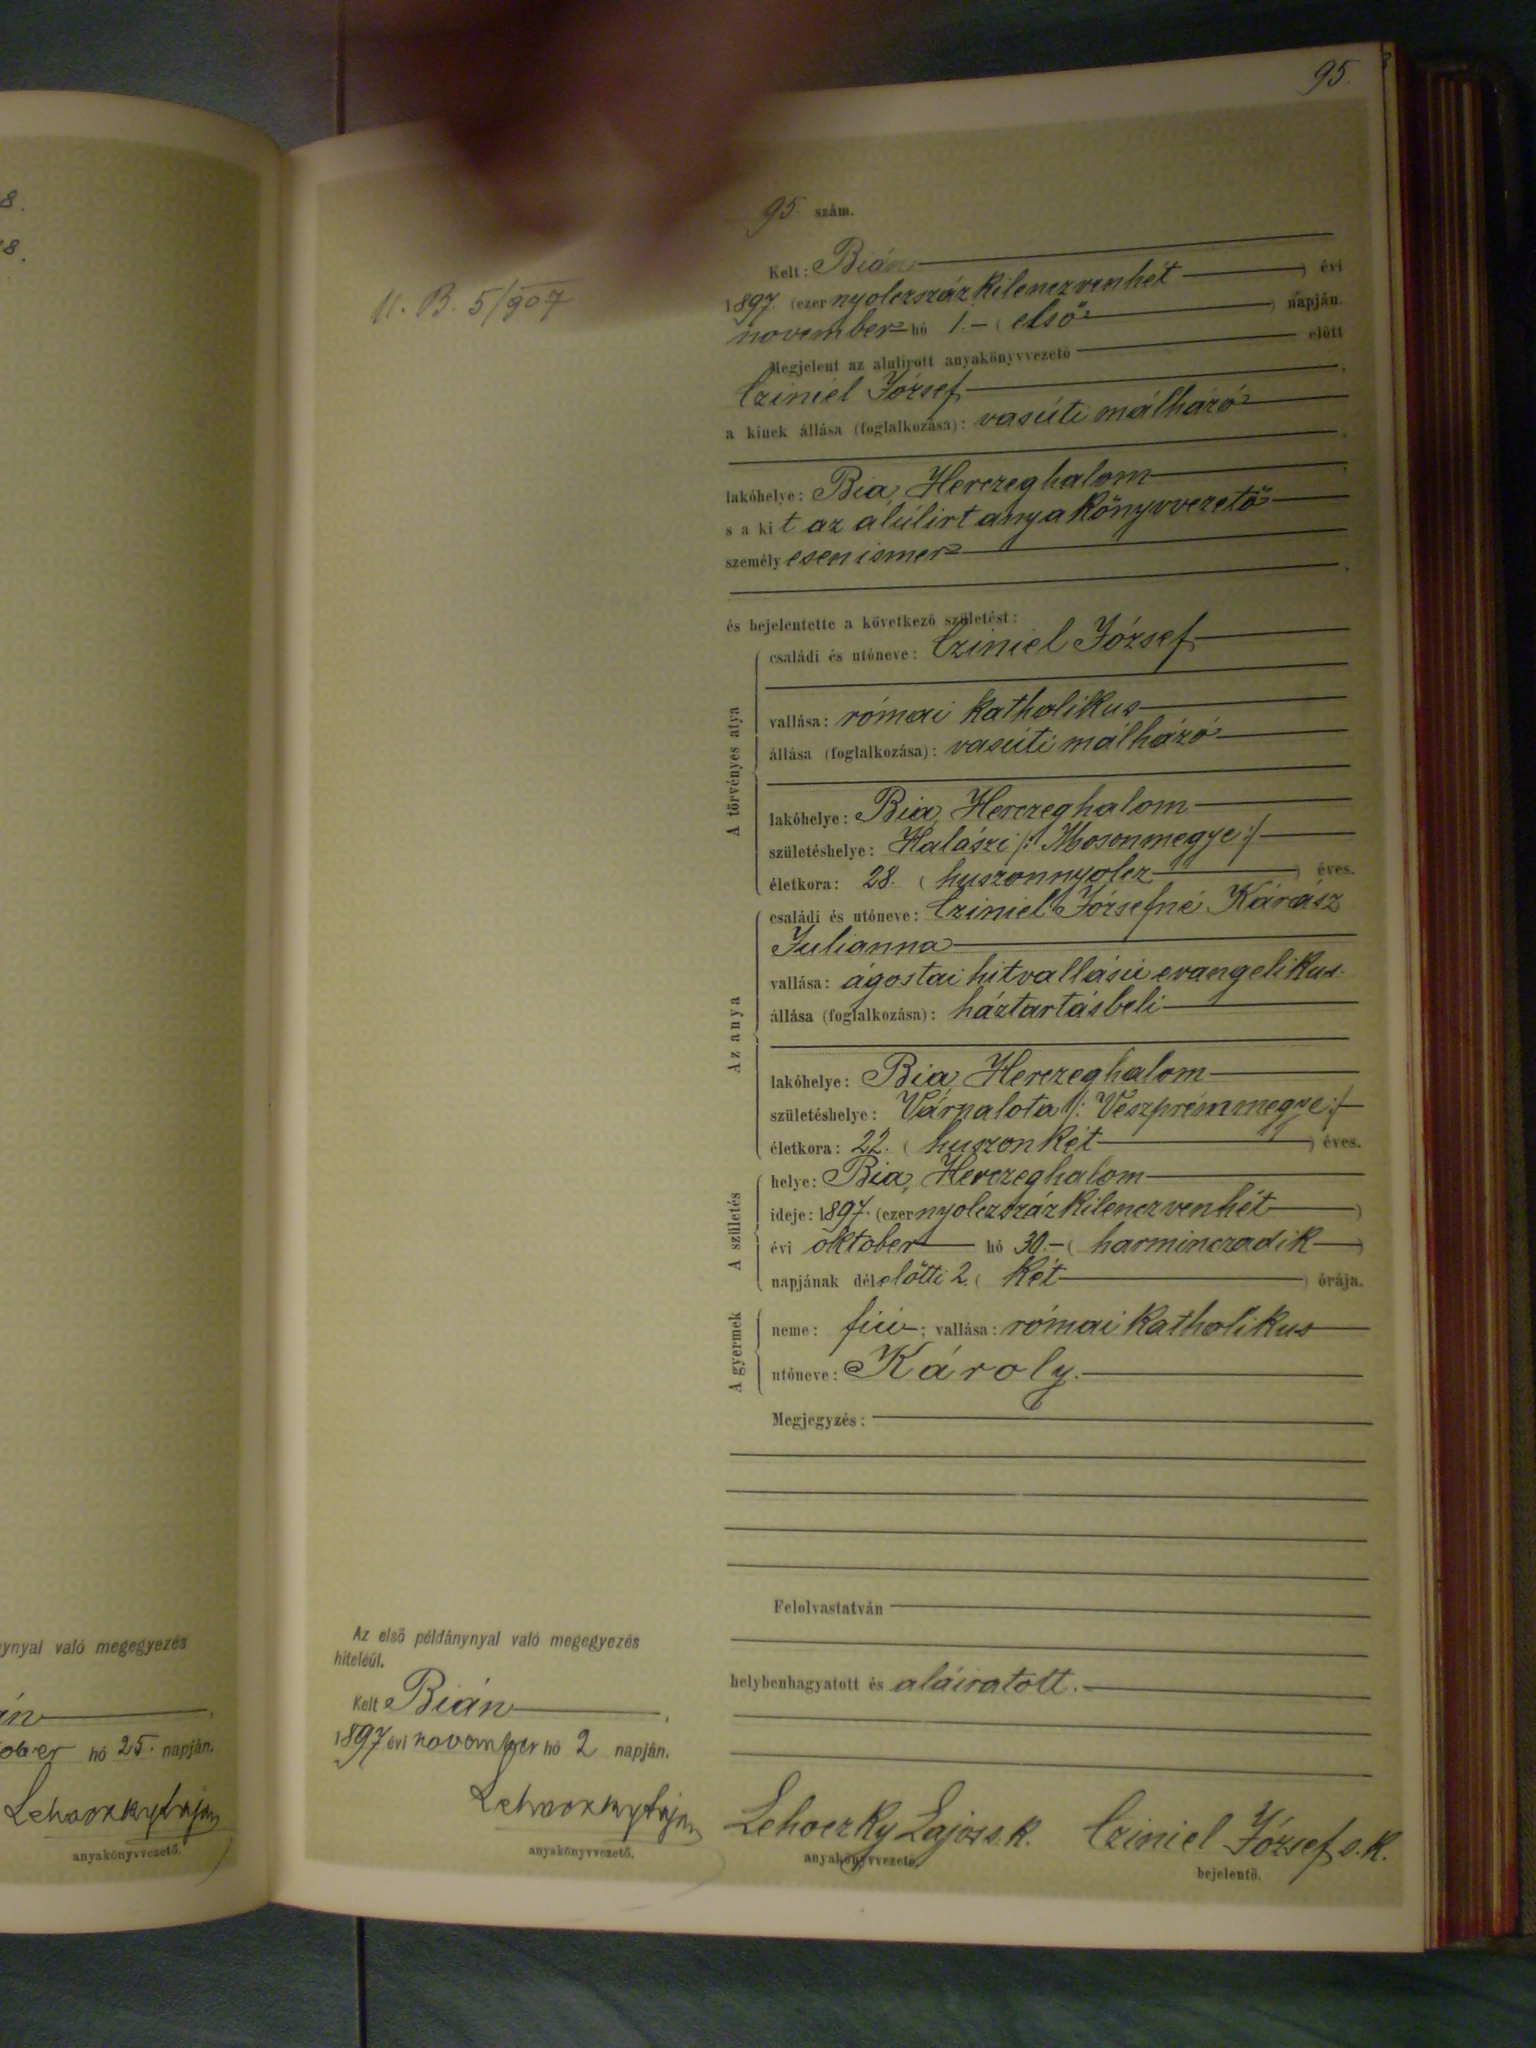 8.
8.
ynyal való megegyezés
án
ober hó 25. napján.
Lehoczky Lajos
anyakönyvvezető.
95.
11. B. 5/907
95 szám.
Kelt: Bián
1897. (ezer nyolczszáz kilenczvenhét) évi
november hó 1. (első) napján.
Megjelent az alulírott anyakönyvvezető előtt
Cziniel József,
a kinek állása (foglalkozása): vasúti málházó
lakóhelye: Bia, Herczeghalom
s a kit az alúlirt anyakönyvvezető
személyesen ismer
és bejelentette a következő születést:
A törvényes atya
családi és utóneve: Cziniel József
vallása: római katholikus
állása (foglalkozása): vasúti málházó
lakóhelye: Bia, Herczeghalom
születéshelye: Halászi /: Mosonmegye :/
életkora: 28. (huszonnyolcz) éves.
Az anya
családi és utóneve: Cziniel Józsefné Kárász
Julianna
vallása: ágostai hitvallású evangelikus.
állása (foglalkozása): háztartásbeli
lakóhelye: Bia, Herczeghalom
születéshelye: Várpalota /: Veszprémmegye :/
életkora: 22. (huszonkét) éves.
A születés
helye: Bia, Herczeghalom
ideje: 1897. (ezer nyolczszáz kilenczvenhét)
évi október hó 30. (harminczadik)
napjának délelőtti 2. (két) órája.
A gyermek
neme: fiú; vallása: római katholikus
utóneve: Károly.
Megjegyzés:
Felolvastatván
helybenhagyatott és aláiratott.
Lehoczky Lajos s.k.
anyakönyvvezető.
Cziniel József s.k.
bejelentő.
Az első példánynyal való megegyezés
hiteléül.
Kelt Bián,
1897 évi november hó 2 napján.
Lehoczky Lajos
anyakönyvvezető.